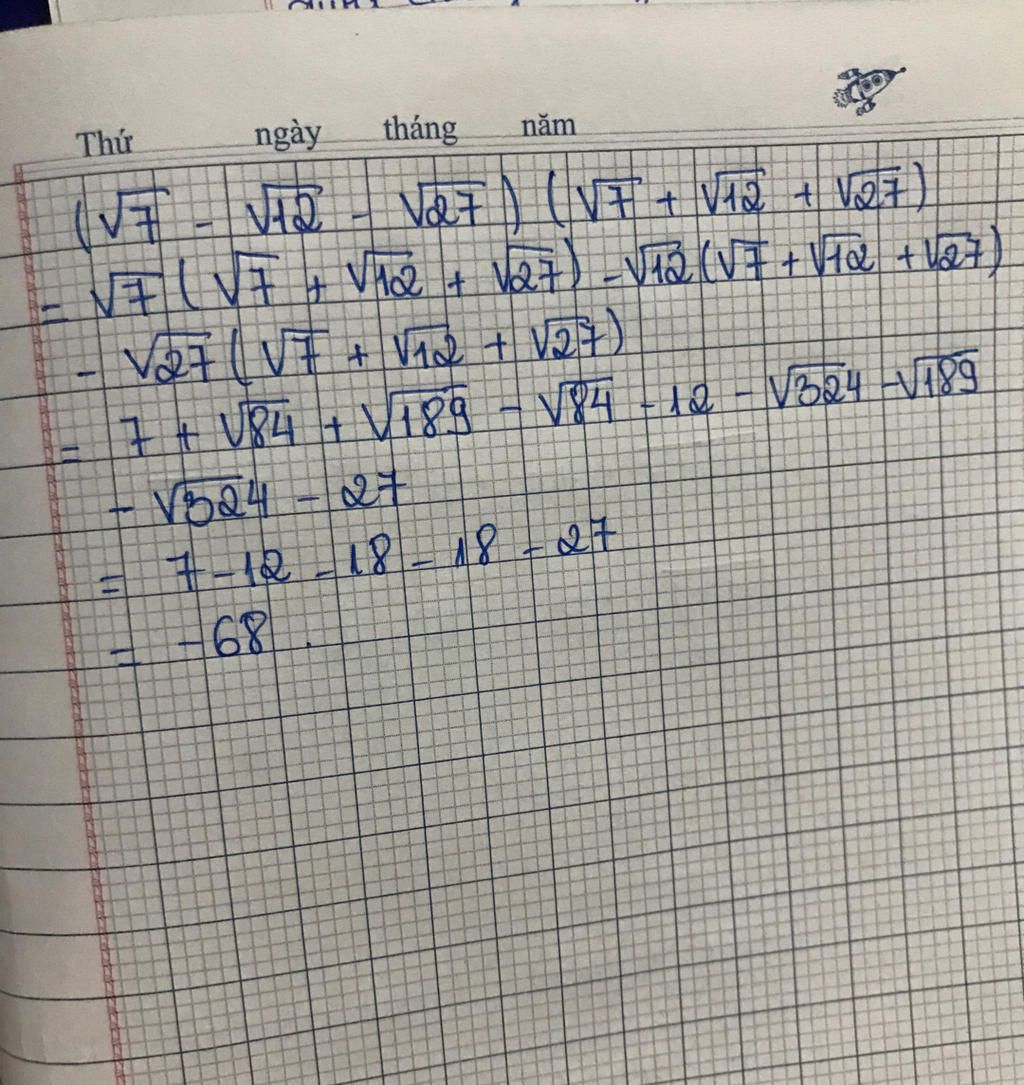 Thứ ngày tháng năm
(√7 - √12 - √27) (√7 + √12 + √27)
= √7 (√7 + √12 + √27) - √12 (√7 + √12 + √27)
- √27 (√7 + √12 + √27)
= 7 + √84 + √189 - √84 - 12 - √324 - √189
- √324 - 27
= 7 - 12 - 18 - 18 - 27
= -68 .